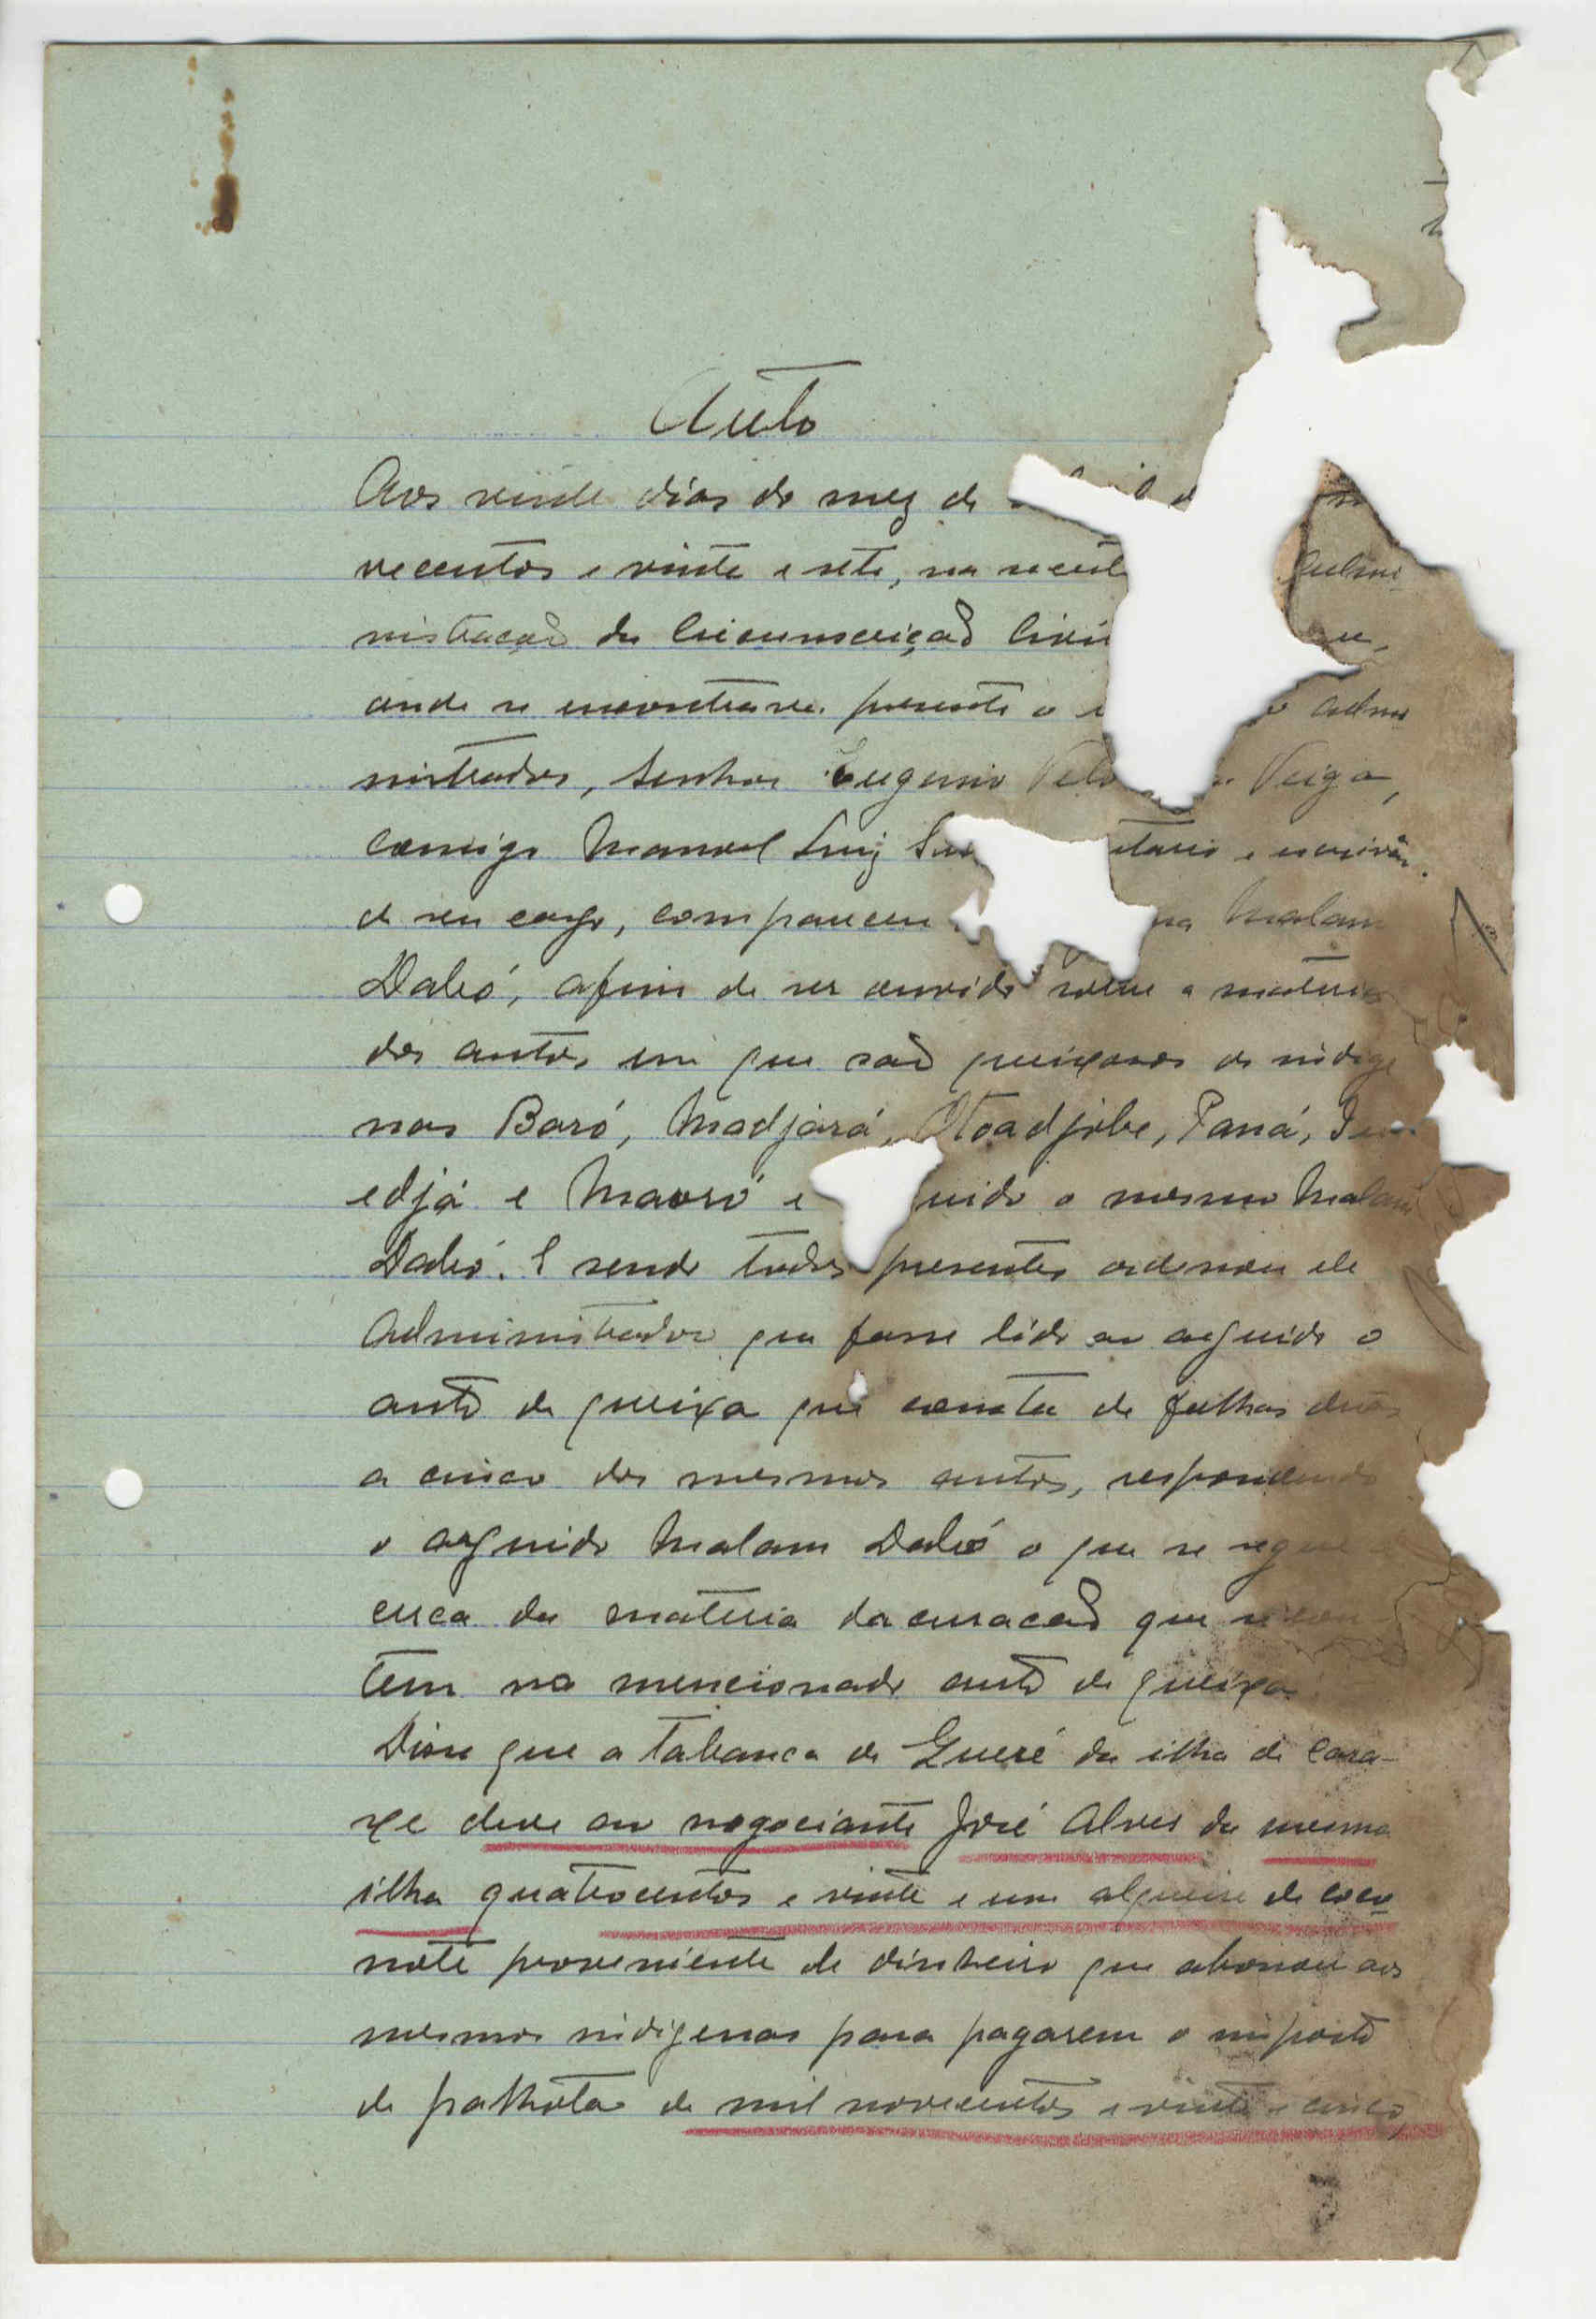 Auto
Aos vinte dias do mez de
vecentos e vinte e sete, na Admi-
nistração da Circunscrição Civil
onde se encontrava presente o admi
nistrador, Senhor Eugenio Veiga,
comigo Manoel Luiz e escrivão
de seu cargo, compareceu Malam
Dabó, afim de ser ouvido sobre a materia
dos autos em que são queixosos os indige
nas Baró, Madjará, Otoadjobe, Paná,
edjá e Maoró e o mesmo Malam
Dabó. E sendo todos presentes ordenou ele
Administrador que fosse lido ao arguido o
auto de queixa que consta de folhas duas
a cinco dos mesmos autos, respondendo
o arguido Malam Dabó o que se segue
cerca da materia da acusação que
tem no mencionado auto de queixa.
Disse que a tabanca de Gueré da ilha de Cara-
xe deve ao negociante José Alves da mesma
ilha quatrocentos e vinte e um alqueire de coco
note proveniente de dinheiro que abonou aos
mesmos indigenas para pagarem o imposto
de palhota de mil novecentos e vinte e cinco,